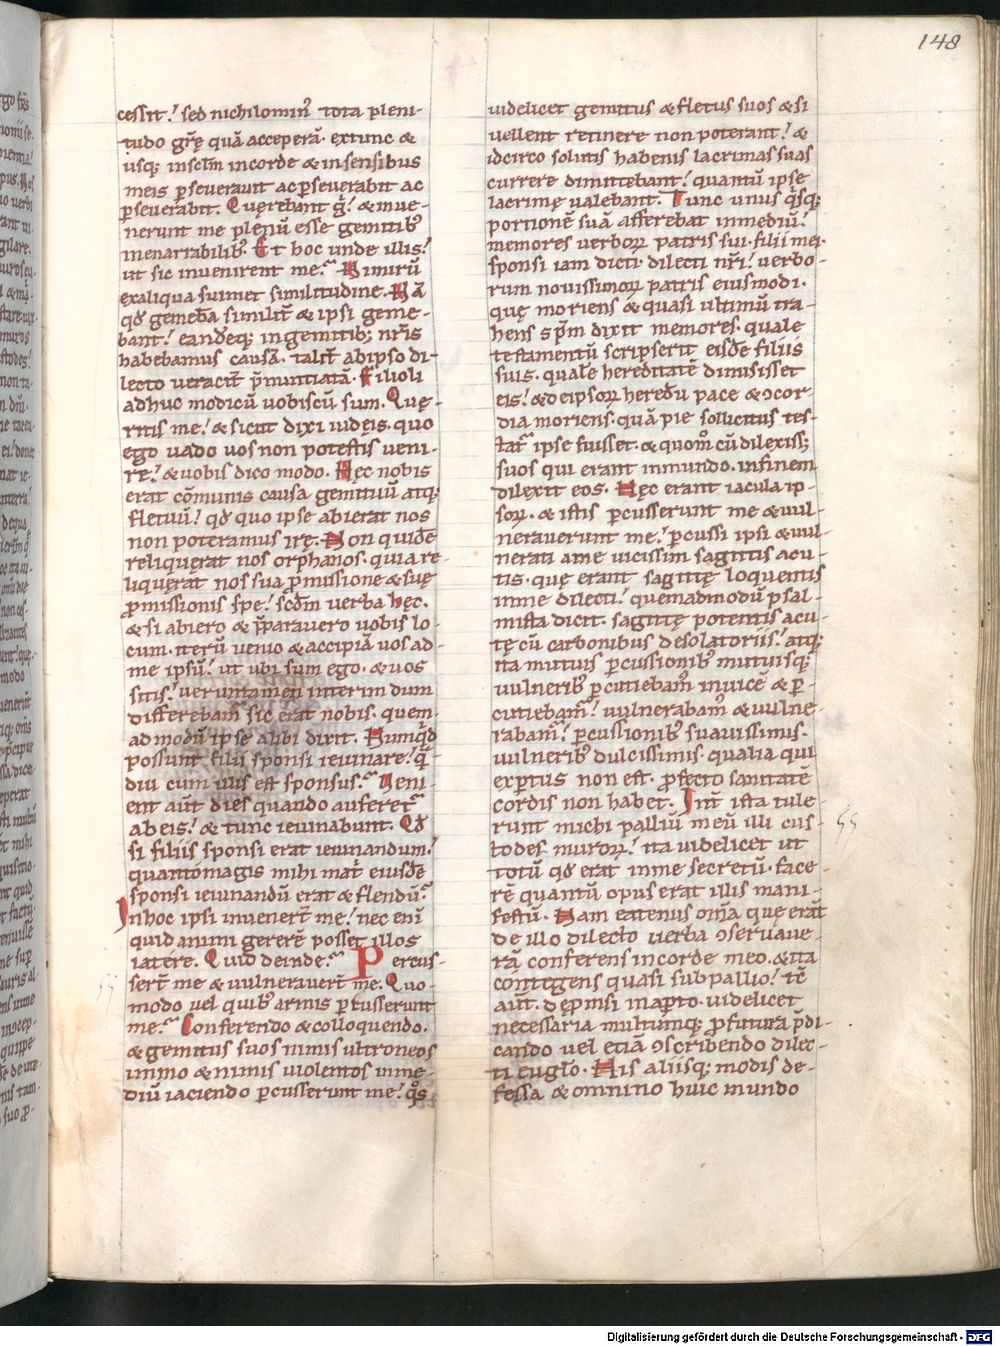 148
cessit! sed nichilomin᷒ tota pleni-
tudo gr̅e̜ quā acceperā. extunc &
usq; inscl̅m incorde & insensibus
meis ꝑseveravit ac ꝑseverabit ac
ꝑseverabit. Que̜rebant g̊! & inve-
nerunt me plenū esse gemitib᷒
inenarrabilib᷒. Et hoc unde illis?
ut sic invenirent me? Nimirū
exaliqua suimet similitudine. Nā
qđ gemebā similit̅ & ipsi geme-
bant! eandeq; ingemitib; nr̅is
habebamus causā. talit̅ abipso di-
lecto veracit̅ p̅nuntiatā. Filioli
adhuc modicū vobiscū sum. Que̜-
ritis me! & sicut dixi iudeis. quo
ego vado vos non potestis veni-
re! & vobis dico modo. Hec nobis
erat cōmunis causa gemituū atq;
fletuū! qđ quo ipse abierat nos
non poteramus ire̜. Non quidē
reliquerat nos orphanos. quia re-
liquerat nos sua ꝓmissione & sue̜
ꝓmissionis spe! scđm verba hec.
& si abiero & p̅paravero vobis lo-
cum. iterū venio & accipiā vos ad
me ipsū! ut ubi sum ego. & vos
sitis! veruntamen interim dum
differebam᷒ sic erat nobis. quem-
ad modū ipse alibi dixit. Numqđ
possunt filii sponsi ieiunare! q̅-
diu cum illis est sponsus? Veni-
ent aūt dies quando auferet᷒
ab eis! & tunc ieiunabunt. Qđ
si filiis sponsi erat ieiunandum!
quantomagis mihi mat̅ eiusdē
sponsi ieiunandū erat & flendū?
Inhoc ipsi invener̅t me! nec enī
quid animi gererē posset illos
latere. Quid deinde? Percus-
ser̅t me & vulneraver̅t me. Quo-
modo vel quib᷒ armis ꝑcusserunt
me? Conferendo & colloquendo.
& gemitus suos nimis ultroneos
immo & nimis violentos inme-
diū iaciendo ꝑcusserunt me! q̊s
videlicet gemitus & fletus suos & si
vellent retinere non poterant! &
idcirco solutis habenis lacrimas suas
currere dimittebant! quantū ipse̜
lacrime̜ valebant. Tunc unus q̇sq;
portionē suā afferebat inmediū!
memores verboꝝ patris sui. filii mei.
sponsi iam dicti. dilecti nr̅i! verbo-
rum novissimoꝝ patris eiusmodi.
que̜ moriens & quasi ultimū tra-
hens sp̅m dixit memores. quale
testamentū scripserit eisdē filiis
suis. qualē hereditatē dimisisset
eis! & deipsoꝝ heredū pace & ꝯcor-
dia moriens. quā pie sollicitus tes-
tat᷒ ipse fuisset. & quom̊ cū dilexiss;
suos qui erant inmundo. infinem
dilexit eos. Hec erant iacula ip-
soꝝ. & istis ꝑcusserunt me & vul-
neraverunt me! ꝑcussi ipsi & vul-
nerati a me vicissim sagittis acu-
tis. que̜ erant sagitte̜ loquentis
inme dilecti! quemadmodū psal-
mista dicit. sagitte̜ potentis acu-
te̜ cū carbonibus desolatoriis! atq;
ita mutuis ꝑcussionib᷒ mutuisq;
vulnerib᷒ ꝑcutiebam᷒ invicē & ꝑ-
cutiebam᷒! vulnerabam᷒ & vulne-
rabam᷒! ꝑcussionib᷒ suavissimis.
vulnerib᷒ dulcissimis. qualia qui
exꝑtus non est. ꝓfecto sanitatē
cordis non habet. Int̅ ista tule-
runt michi palliū meū illi cus-
todes muroꝝ! ita videlicet ut
totū qđ erat inme secretū. face-
rē quantū opus erat illis mani-
festū. Nam eatenus om̅a que̜ erāt
de illo dilecto verba ꝯservave-
rā conferens incorde meo. & ita
contegens quasi subpallio! tē
aūt. deꝓmsi inaꝑto. videlicet
necessaria multumq; ꝓfutura p̅di-
cando vel etiā ꝯscribendo dilec-
ti eugl̅o. His aliisq; modis de-
fessa & omnino huic mundo
Digitalisierung gefördert durch die Deutsche Forschungsgemeinschaft - DFG